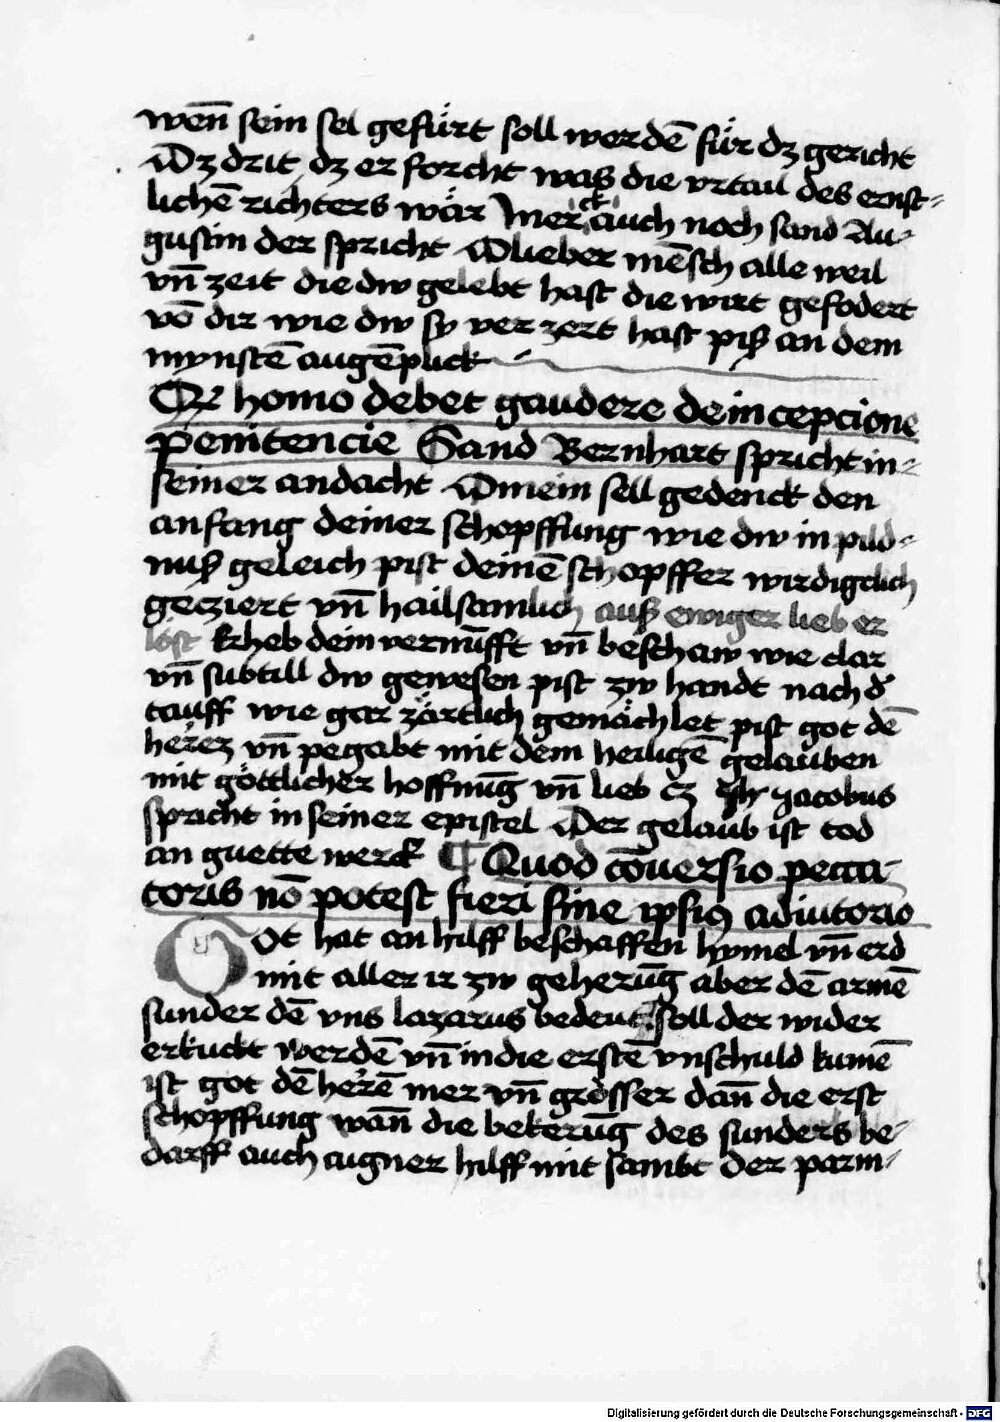 wen̄ sein sel gefürt soll werdē für dz gericht
Dz drit dz er forcht was die vrtail des ernst-
lichē richters wär Merck auch noch sand Au-
gustin der spricht O lieber mēsch alle weil
vn̄ zeit die dw gelebt hast die wirt gefodert
vō dir wie dw sy ver zert hast piß an dem
mynstē augēplick
homo debet gaudere de incepcione
Penitencie Sand Bernhart spricht in
seiner andacht O mein sell gedenck den
anfang deiner schopffung wie dw in pild-
nuß geleich pist deinē schopffer wirdigclich
gecziert vn̄ hailsamlich auß ewiger lieb er
löst Erheb dein vernūfft vn̄ beschaw wie clar
vn̄ subtill dw gewesen pist zw handt nach d̓
tauff wie gar zärtlich gemächlet pist got dē
herrē vn̄ pegabt mit dem heiligē gelauben
mit göttlicher hoffnūg vn̄ lieb Jacobus
spricht in seiner epistel Der gelaub ist tod
an guette werck ¶ Quod cōuersio pecca-
toris nō potest fieri sine ipsiꝰ adiutorio
Got hat an hilff beschaffen hymel vn̄ erd
mit aller ir zw geherūg aber dē armē
sunder dē vns lazarus bedeut soll der wider
erkuckt werdē vn̄ in die erstē vnschuld kumē
ist got dē herrē mer vn̄ grösser dan̄ die erst
schopffung wan̄ die bekerūg des sunders be-
darff auch aigner hilff mit sambt der parm-
Digitalisierung gefördert durch die Deutsche Forschungsgemeinschaft - DFG